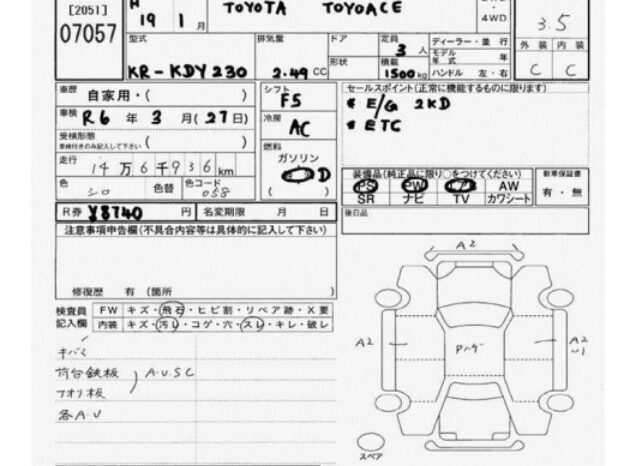 [2051]
07057
H
19 1 月
TOYOTA TOYOACE
・
4WD
3.5
型式
KR-KDY230
排気量
2.49 CC
ドア
形状
定員
3 人
積載
1500 kg
ディーラー・並 行
モデル
年 式 年
ハンドル 左・右
外 装 内 装
C C
車歴
自家用・( )
車検 R6 年 3 月( 27 日)
受検形態
車検付きのみ記入して下さい
走行 14 万 6 千 936 km
色 シロ 色替 色コード 058
シフト
F5
冷房
AC
燃料
ガソリン
D
( )
セールスポイント(正常に機能するものに限ります)
* E/G 2KD
* ETC
装備品(純正品に限り○をつけてください)
PS PW AW
SR ナビ TV カワシート
新車保証書
有・無
R券 ¥8740 円 名変期限 月 日
後日品
注意事項申告欄(不具合内容等は具体的に記入して下さい)
修復歴 有 (箇所 )
検査員
記入欄
FW キズ・飛石・ヒビ割・リペア跡・X要
内装 キズ・汚レ・コゲ・穴・スレ・キレ・破レ
キバミ
荷台鉄板
アオリ板
A.U.S.C
各A.U
A2
A2
A2
U1
スペア